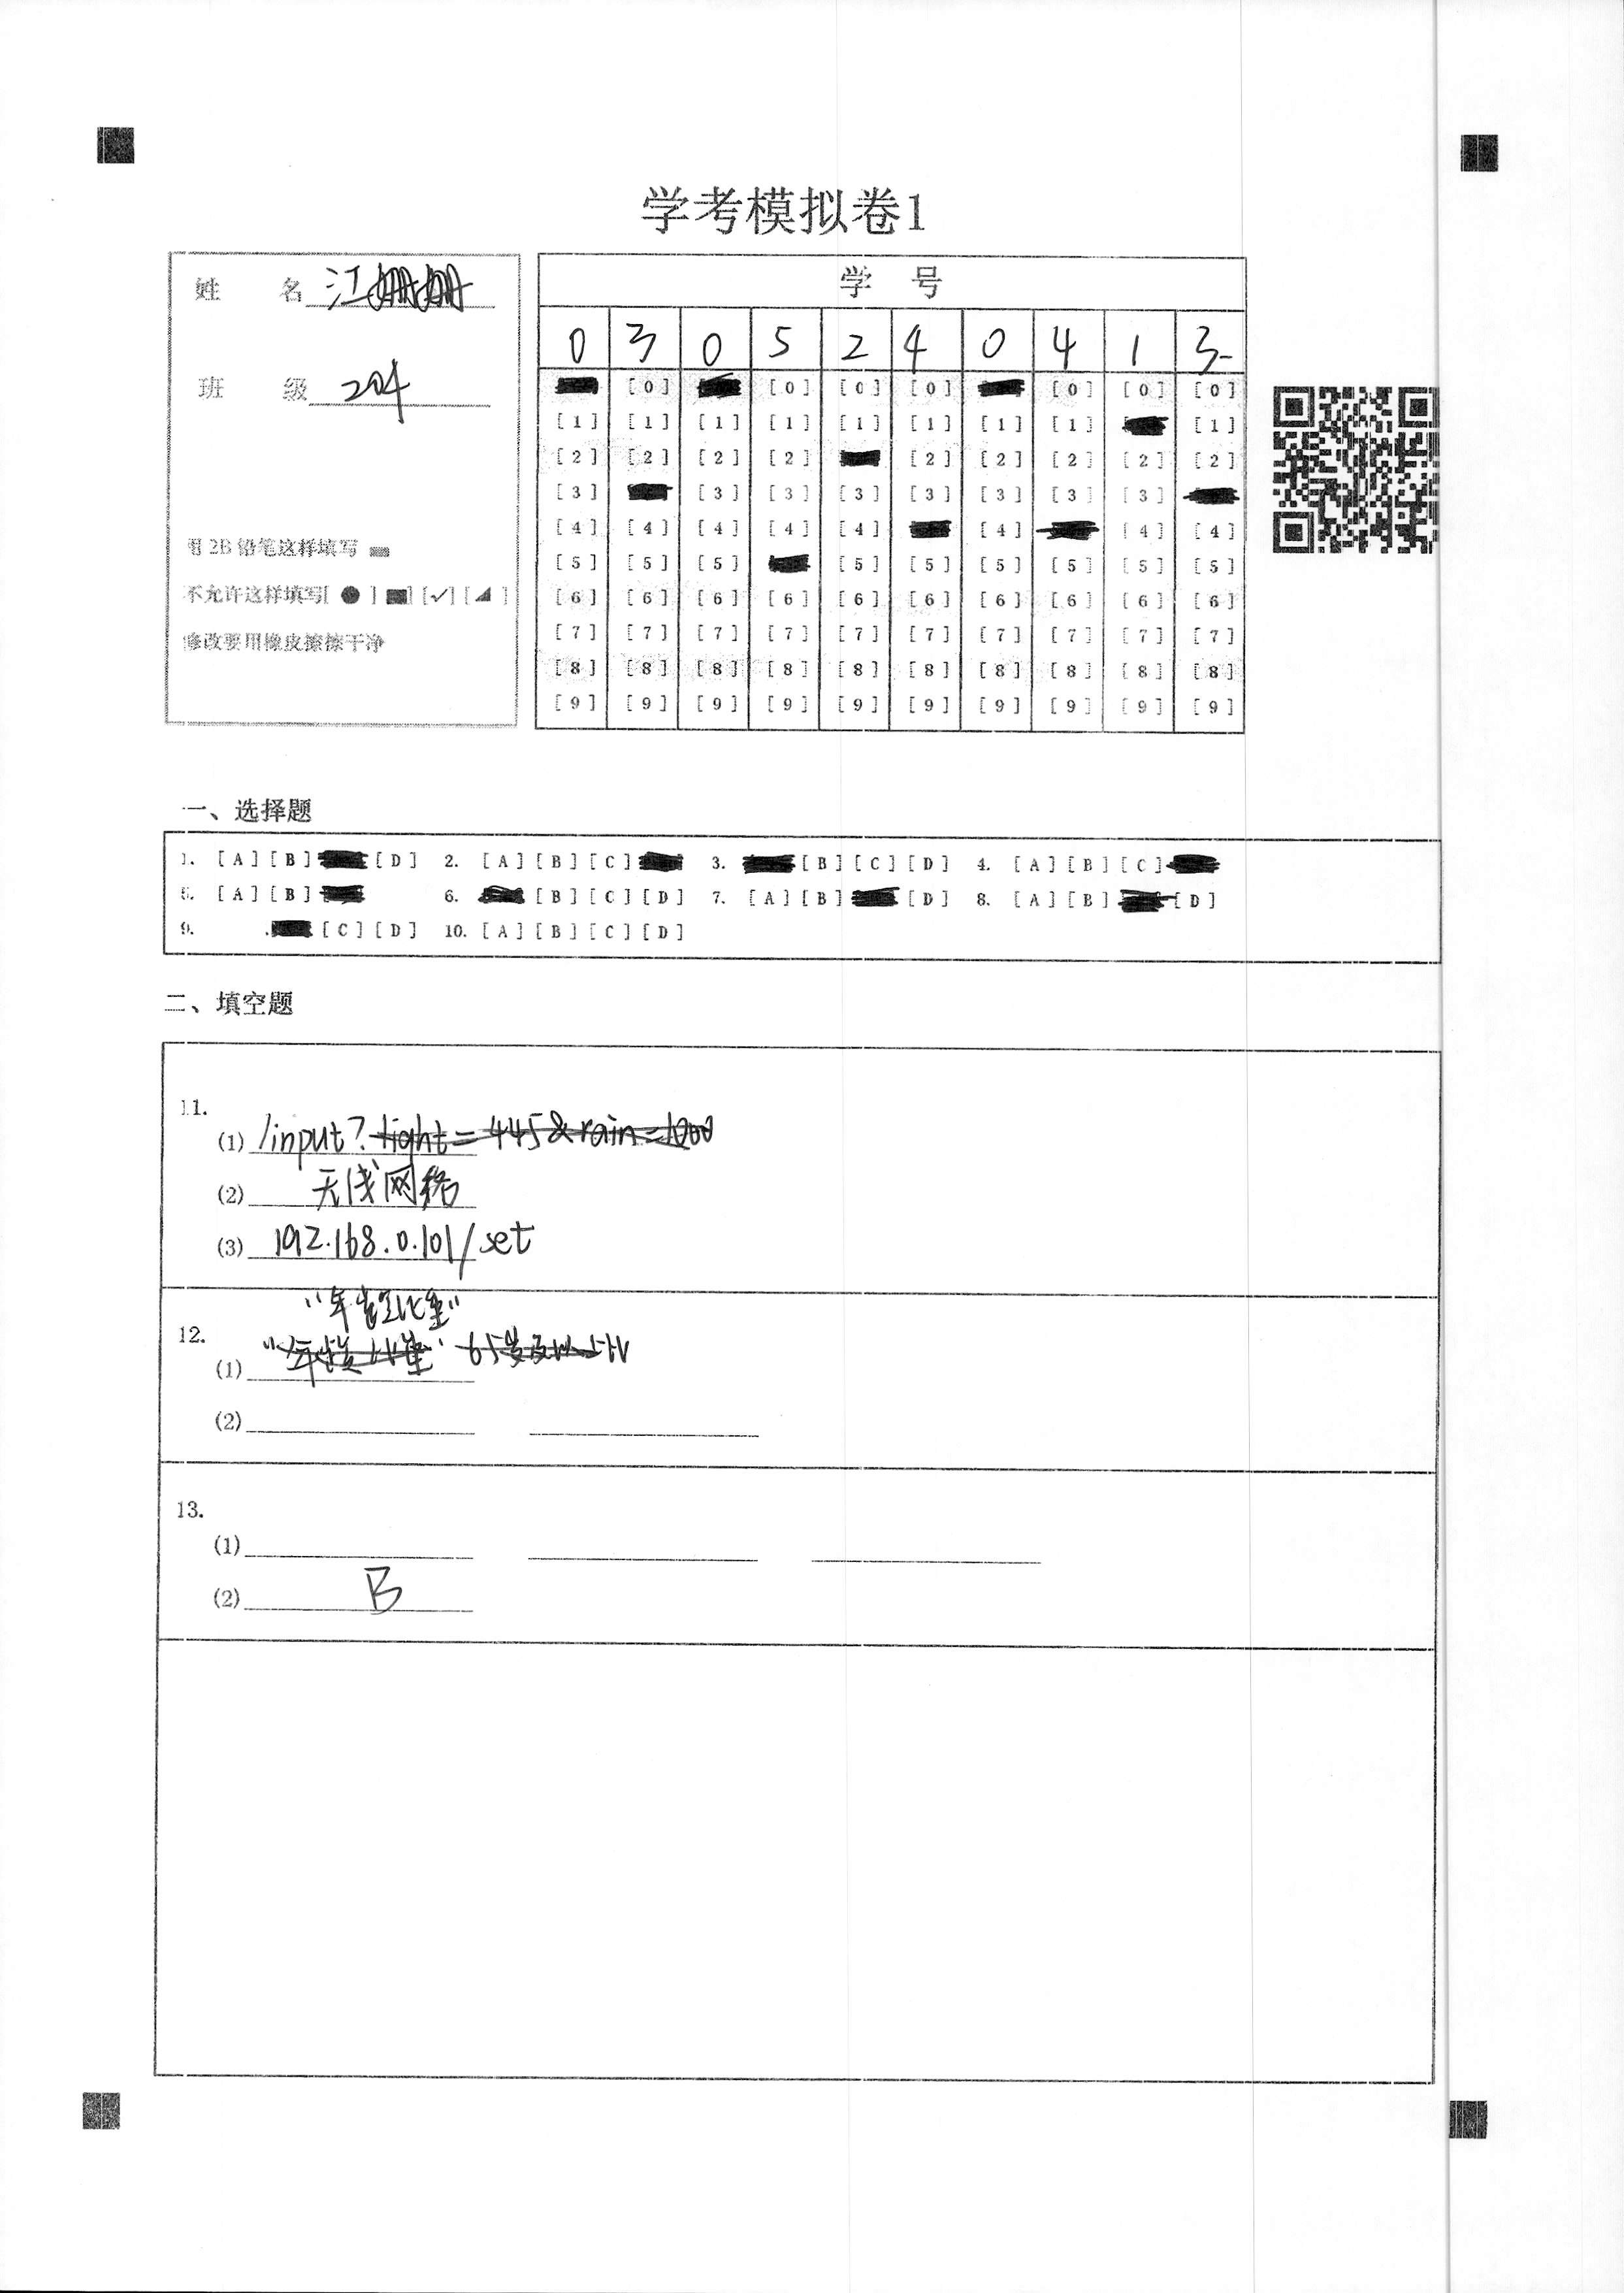 学考模拟卷1
姓 名 江姗姗
班 级 204
用2B铅笔这样填写
不允许这样填写[ ● ] [ ] [✓] [ ]
修改要用橡皮擦擦干净
学 号
0 3 0 5 2 4 0 4 1 3
[0] [0] [0] [0] [0] [0] [0]
[1] [1] [1] [1] [1] [1] [1] [1] [1]
[2] [2] [2] [2] [2] [2] [2] [2] [2]
[3] [3] [3] [3] [3] [3] [3] [3]
[4] [4] [4] [4] [4] [4] [4] [4]
[5] [5] [5] [5] [5] [5] [5] [5] [5]
[6] [6] [6] [6] [6] [6] [6] [6] [6] [6]
[7] [7] [7] [7] [7] [7] [7] [7] [7] [7]
[8] [8] [8] [8] [8] [8] [8] [8] [8] [8]
[9] [9] [9] [9] [9] [9] [9] [9] [9] [9]
一、选择题
1. [A] [B] [D] 2. [A] [B] [C] 3. [B] [C] [D] 4. [A] [B] [C]
5. [A] [B] 6. [B] [C] [D] 7. [A] [B] [D] 8. [A] [B] [D]
9. [C] [D] 10. [A] [B] [C] [D]
二、填空题
11.
(1) /input? light=445&rain=1000
(2) 无线网络
(3) 192.168.0.101/set
12.
(1)
(2)
13.
(1)
(2) B